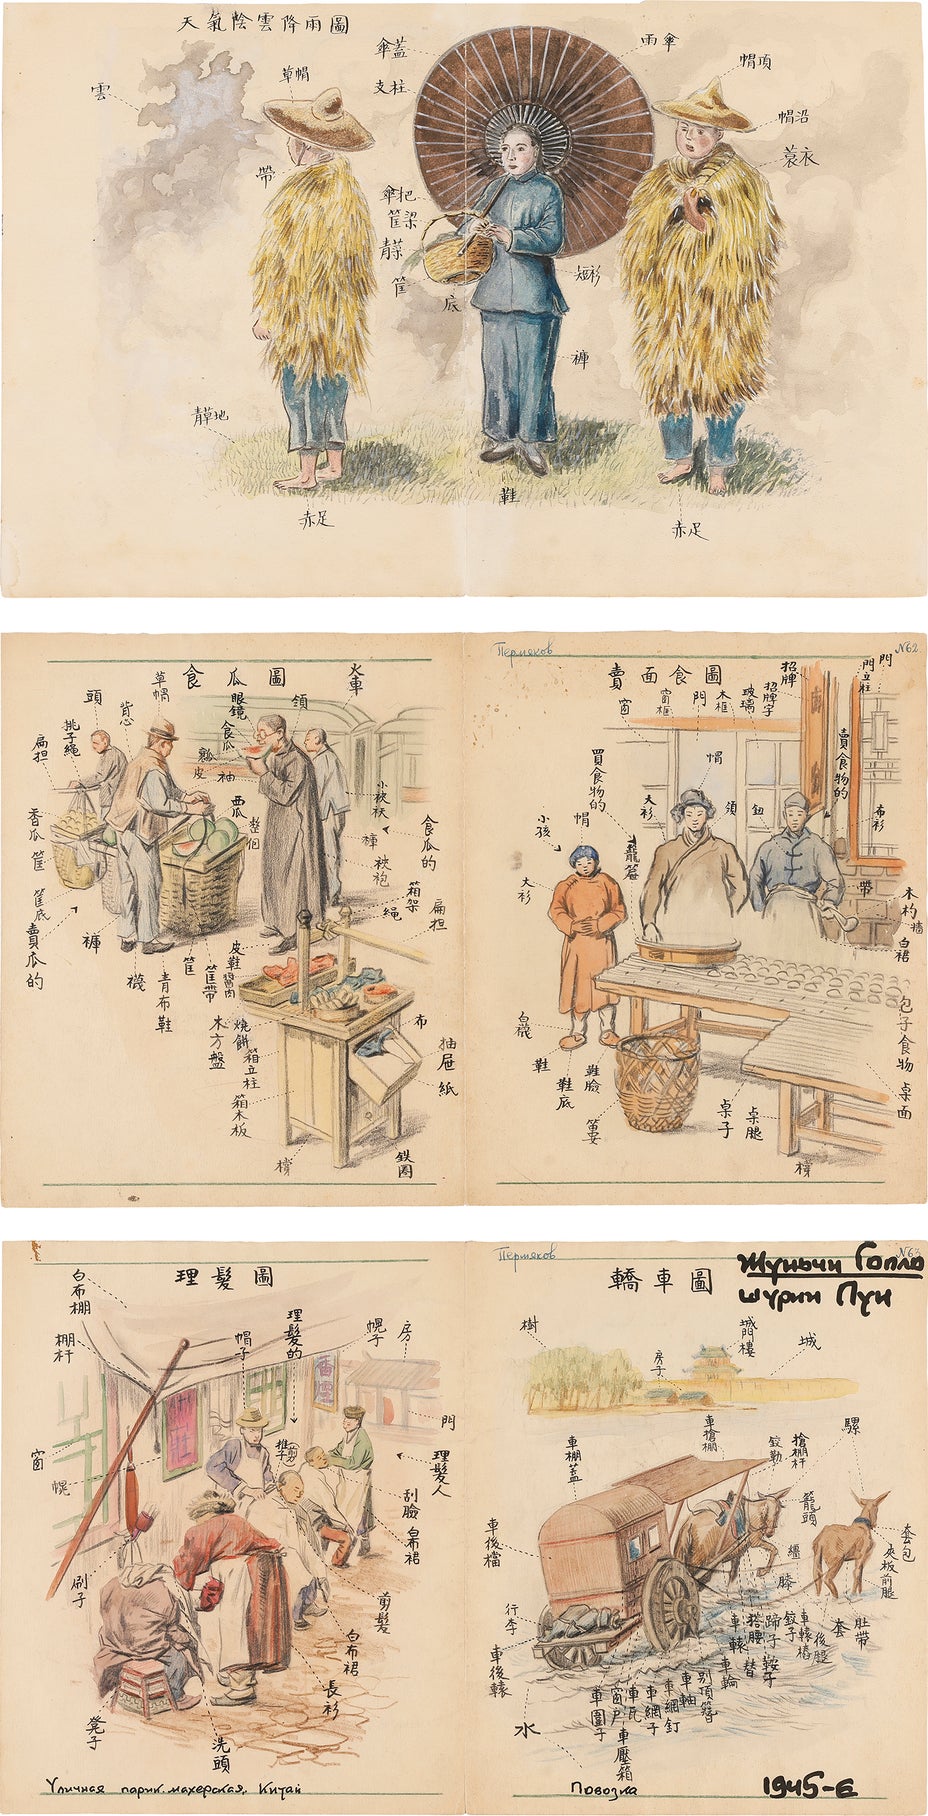 天氣陰雲降雨圖
雲
草帽
帶
傘蓋
支柱
雨傘
帽頂
帽沿
蓑衣
傘把
筐梁
青菜
筐
底
短衫
褲
青草地
鞋
赤足
赤足
食瓜圖
火車
草帽
頭
背心
挑子繩
扁担
眼鏡
食瓜
領
瓤
皮
袖
西瓜
整個
小裌袄
褲
裌袍
食瓜的
香瓜
筐
筐底
賣瓜的
褲
襪
青布鞋
筐
筐帶
皮鞋
醬肉
繩
箱架
扁担
木方盤
燒餅
箱立柱
箱木板
布
抽屜
紙
鉄圈
Пермяков
№62
賣面食圖
窗
窗框
門
木框
玻璃
招牌字
招牌
門立柱
門
買食物的
帽
小孩
大衫
帽
大衫
領
鈕
賣食物的
布衫
籠
帶
木杓
墻
白裙
包子食物
桌面
白襪
鞋
鞋底
鞋臉
桌子
桌腿
理髮圖
白布棚
棚杆
帽子
理髮的
幌子
房
門
窗
幌
推子
剪
理髮人
刮臉
白布裙
剪髮
刷子
白布裙
長衫
凳子
洗頭
Уличная парик.махерская. Китай
Пермяков
№63
轎車圖
Жуньчи Гопло
шурин Пуи
樹
房子
城門樓
城
車棚蓋
車搶棚
鉸勒
搶棚杆
騾
籠頭
套包
夾板
前腿
繮
膝
車後檔
行李
車後轅
水
車圍子
窗戶
車瓦
車網子
車網釘
車軸
別頂簪
車輪
車轅
搭腰
替
蹄子
鞍子
鉸子
車轅樁
後腿
套
肚帶
車壓箱
Повозка
1945-е